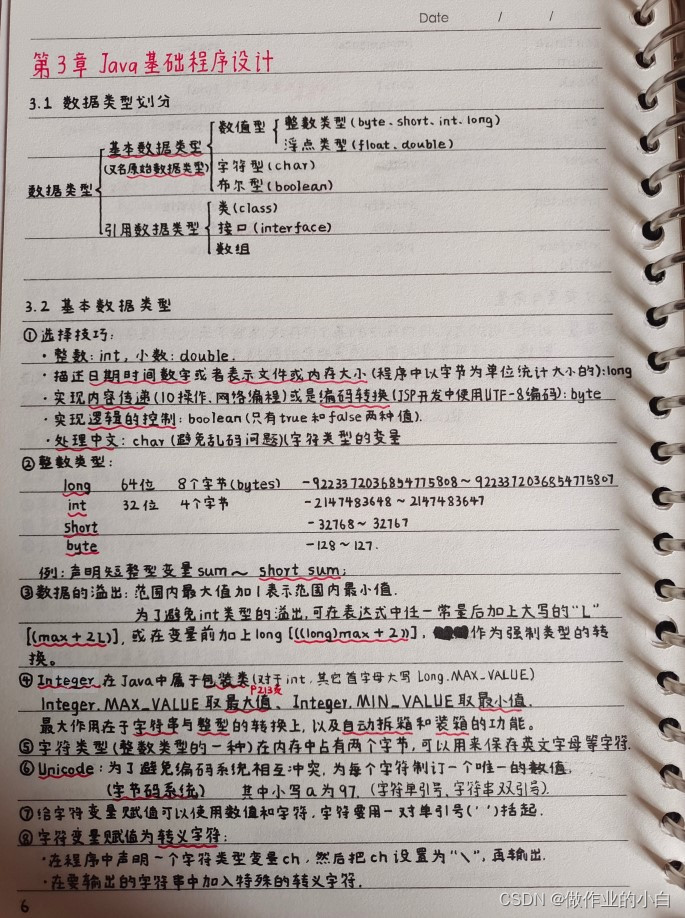 Date / /
第3章 Java基础程序设计
3.1 数据类型划分
数值型 整数类型(byte、short、int、long)
基本数据类型 浮点类型(float、double)
(又名原始数据类型) 字符型(char)
数据类型 布尔型(boolean)
类(class)
引用数据类型 接口(interface)
数组
3.2 基本数据类型
①选择技巧:
·整数: int, 小数: double.
·描述日期时间数字或者表示文件或内存大小(程序中以字节为单位统计大小的):long
·实现内容传递(IO操作、网络编程)或是编码转换(JSP开发中使用UTF-8编码): byte
·实现逻辑的控制: boolean(只有true和false两种值).
·处理中文: char (避免乱码问题)(字符类型的变量
②整数类型:
long 64位 8个字节(bytes) -9223372036854775808~9223372036854775807
int 32位 4个字节 -2147483648~2147483647
short -32768~32767
byte -128~127.
例: 声明短整型变量sum~ short sum;
③数据的溢出: 范围内最大值加1表示范围内最小值.
为了避免int类型的溢出,可在表达式中任一常量后加上大写的"L"
[(max+2L)], 或在变量前加上long [((long)max+2))], 作为强制类型的转
换。
④Integer 在Java中属于包装类(对于int, 其它首字母大写 Long.MAX_VALUE)
P213页
Integer.MAX_VALUE 取最大值、Integer.MIN_VALUE 取最小值.
最大作用在于字符串与整型的转换上, 以及自动拆箱和装箱的功能。
⑤字符类型(整数类型的一种)在内存中占有两个字节, 可以用来保存英文字母等字符.
⑥Unicode: 为了避免编码系统相互冲突, 为每个字符制订一个唯一的数值,
(字节码系统) 其中小写a为97. (字符单引号, 字符串双引号).
⑦给字符变量赋值可以使用数值和字符, 字符需用一对单引号(' ')括起.
⑧字符变量赋值为转义字符:
·在程序中声明一个字符类型变量ch, 然后把ch设置为"\", 再输出.
·在要输出的字符串中加入特殊的转义字符.
6
CSDN @做作业的小白